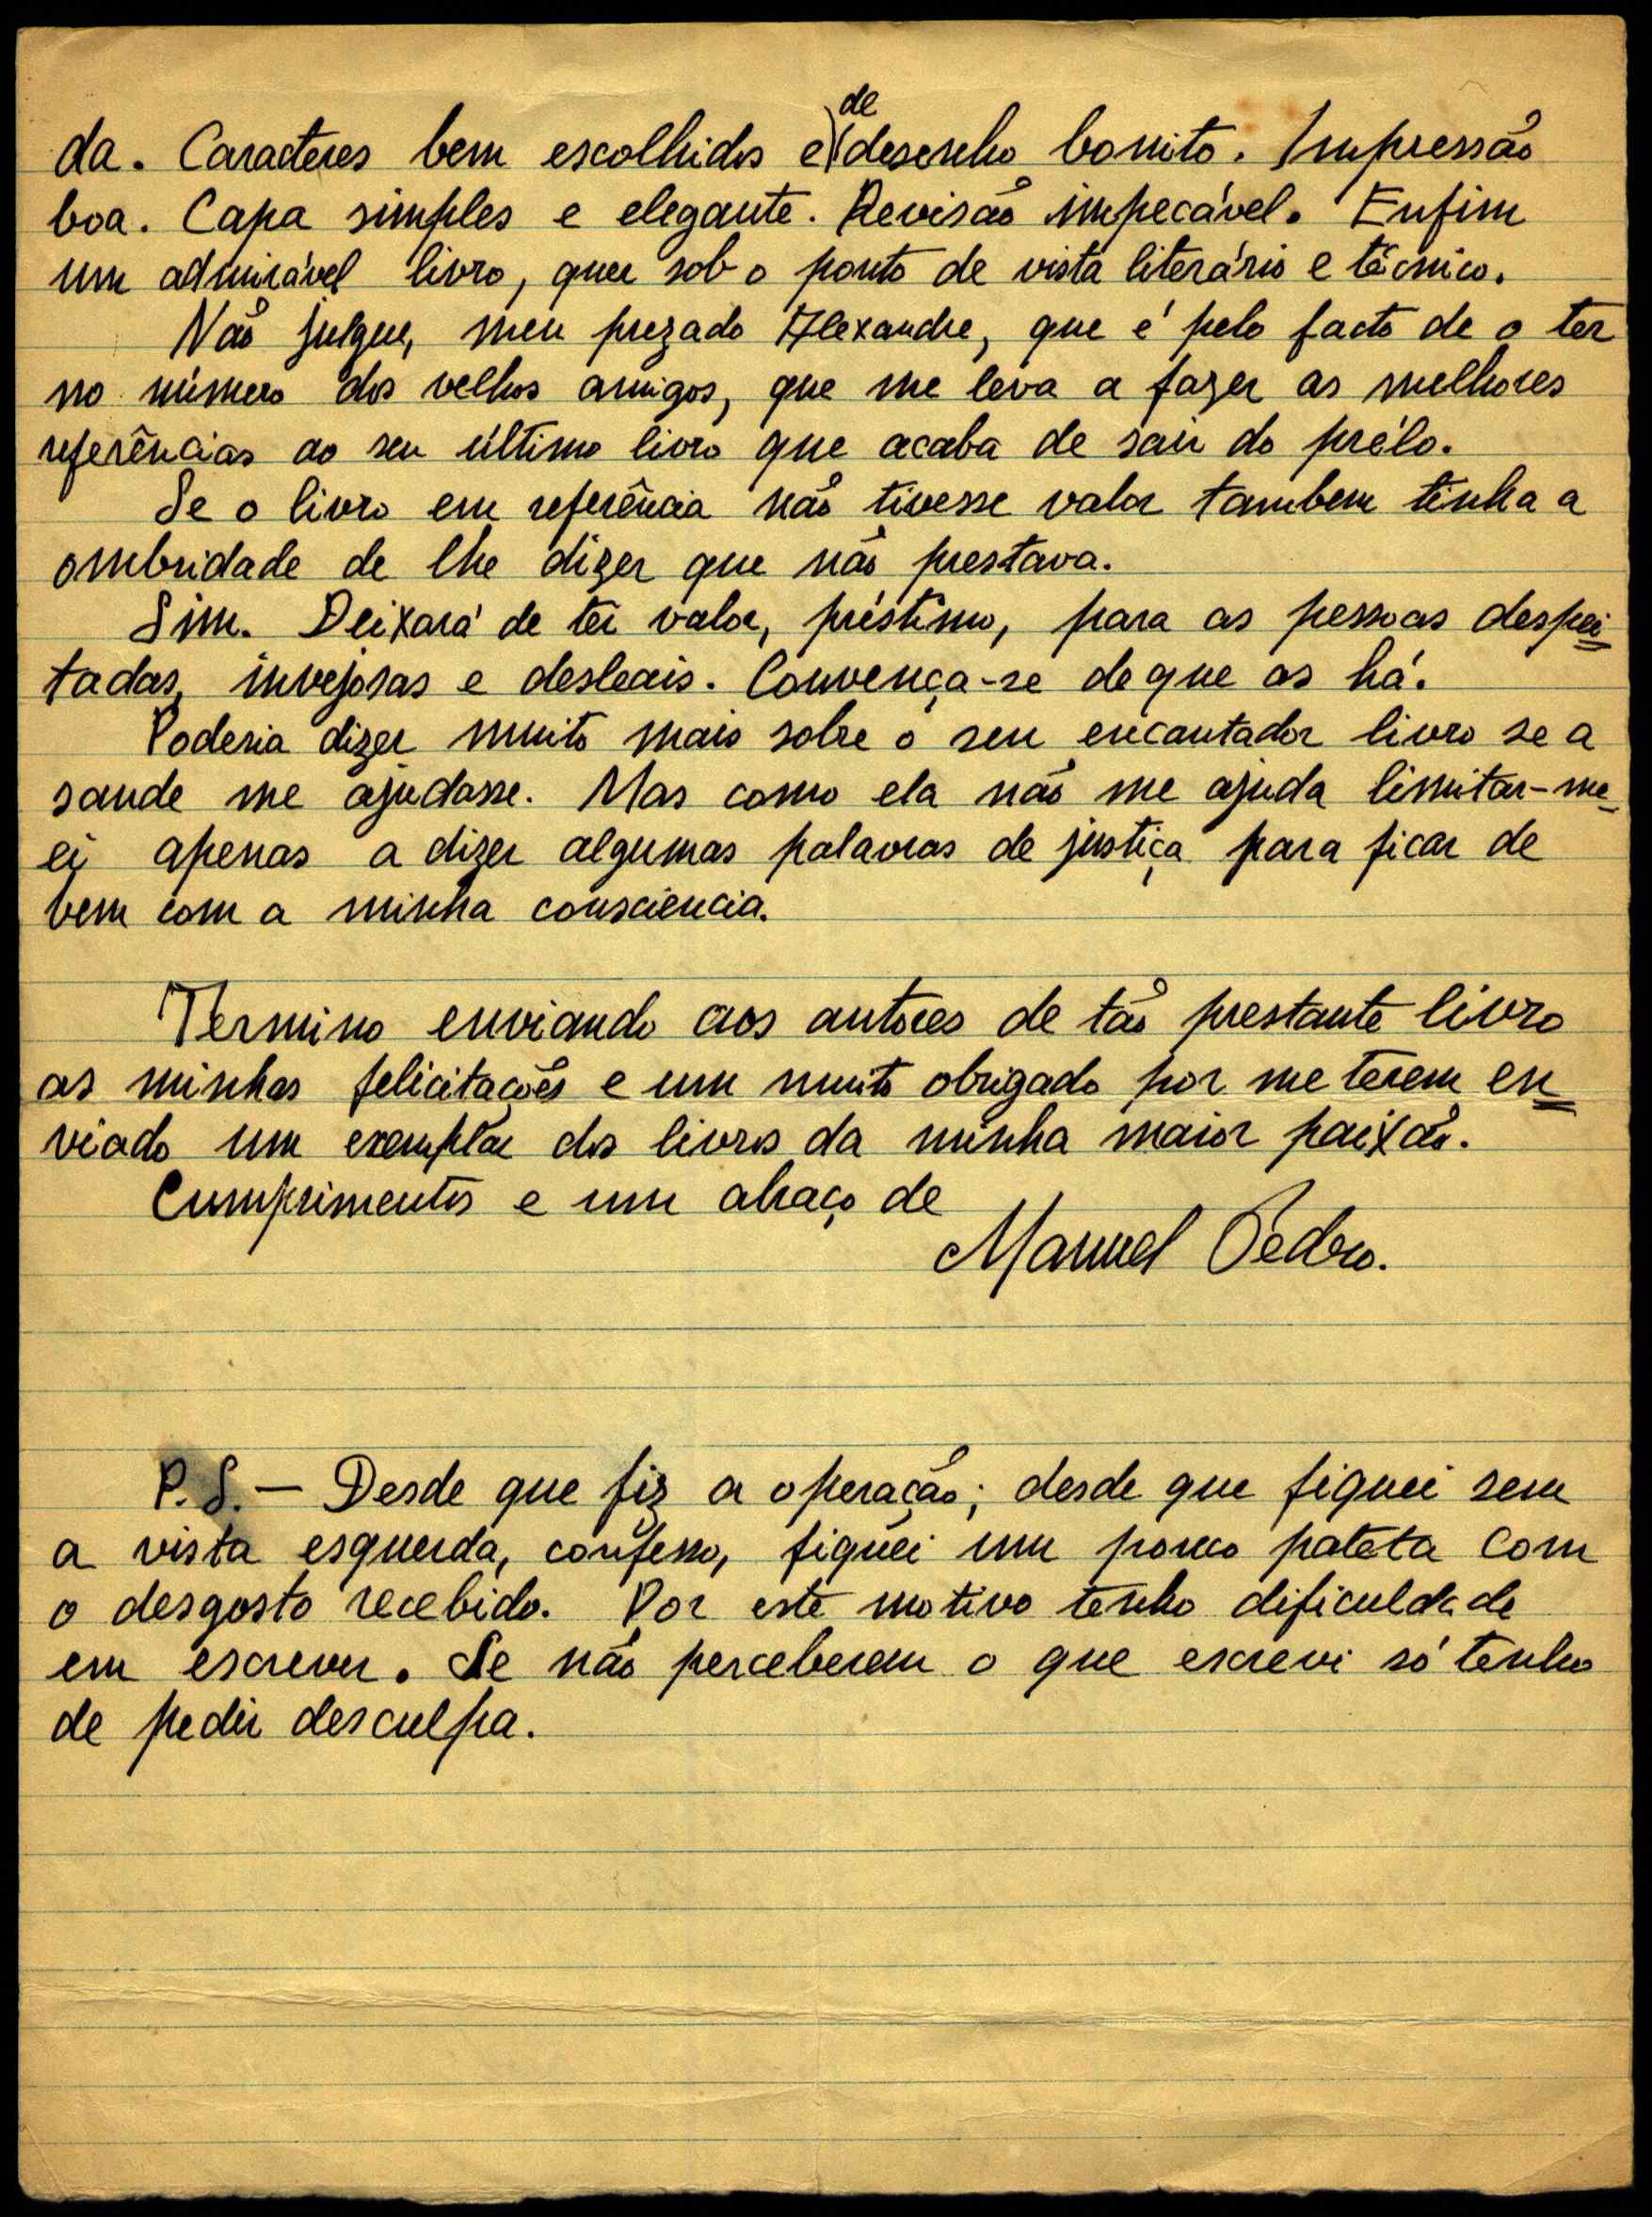 da. Caracteres bem escolhidos e de desenho bonito. Impressão
boa. Capa simples e elegante. Revisão impecável. Enfim
um admirável livro, quer sob o ponto de vista literário e técnico.
Não julgue, meu prezado Alexandre, que é pelo facto de o ter
no número dos velhos amigos, que me leva a fazer as melhores
referências ao seu último livro que acaba de sair do prélo.
Se o livro em referência não tivesse valor tambem tinha a
ombridade de lhe dizer que não prestava.
Sim. Deixará de ter valor, préstimo, para as pessoas despei-
tadas, invejosas e desleais. Convença-se de que as há.
Poderia dizer muito mais sobre o seu encantador livro se a
saude me ajudasse. Mas como ela não me ajuda limitar-me-
ei apenas a dizer algumas palavras de justiça para ficar de
bem com a minha consciencia.
Termino enviando aos autores de tão prestante livro
as minhas felicitações e um muito obrigado por me terem en-
viado um exemplar dos livros da minha maior paixão.
Cumprimentos e um abraço de
Manuel Pedro.
P.S. — Desde que fiz a operação; desde que fiquei sem
a vista esquerda, confesso, fiquei um pouco pateta com
o desgosto recebido. Por este motivo tenho dificuldade
em escrever. Se não perceberem o que escrevi só tenho
de pedir desculpa.